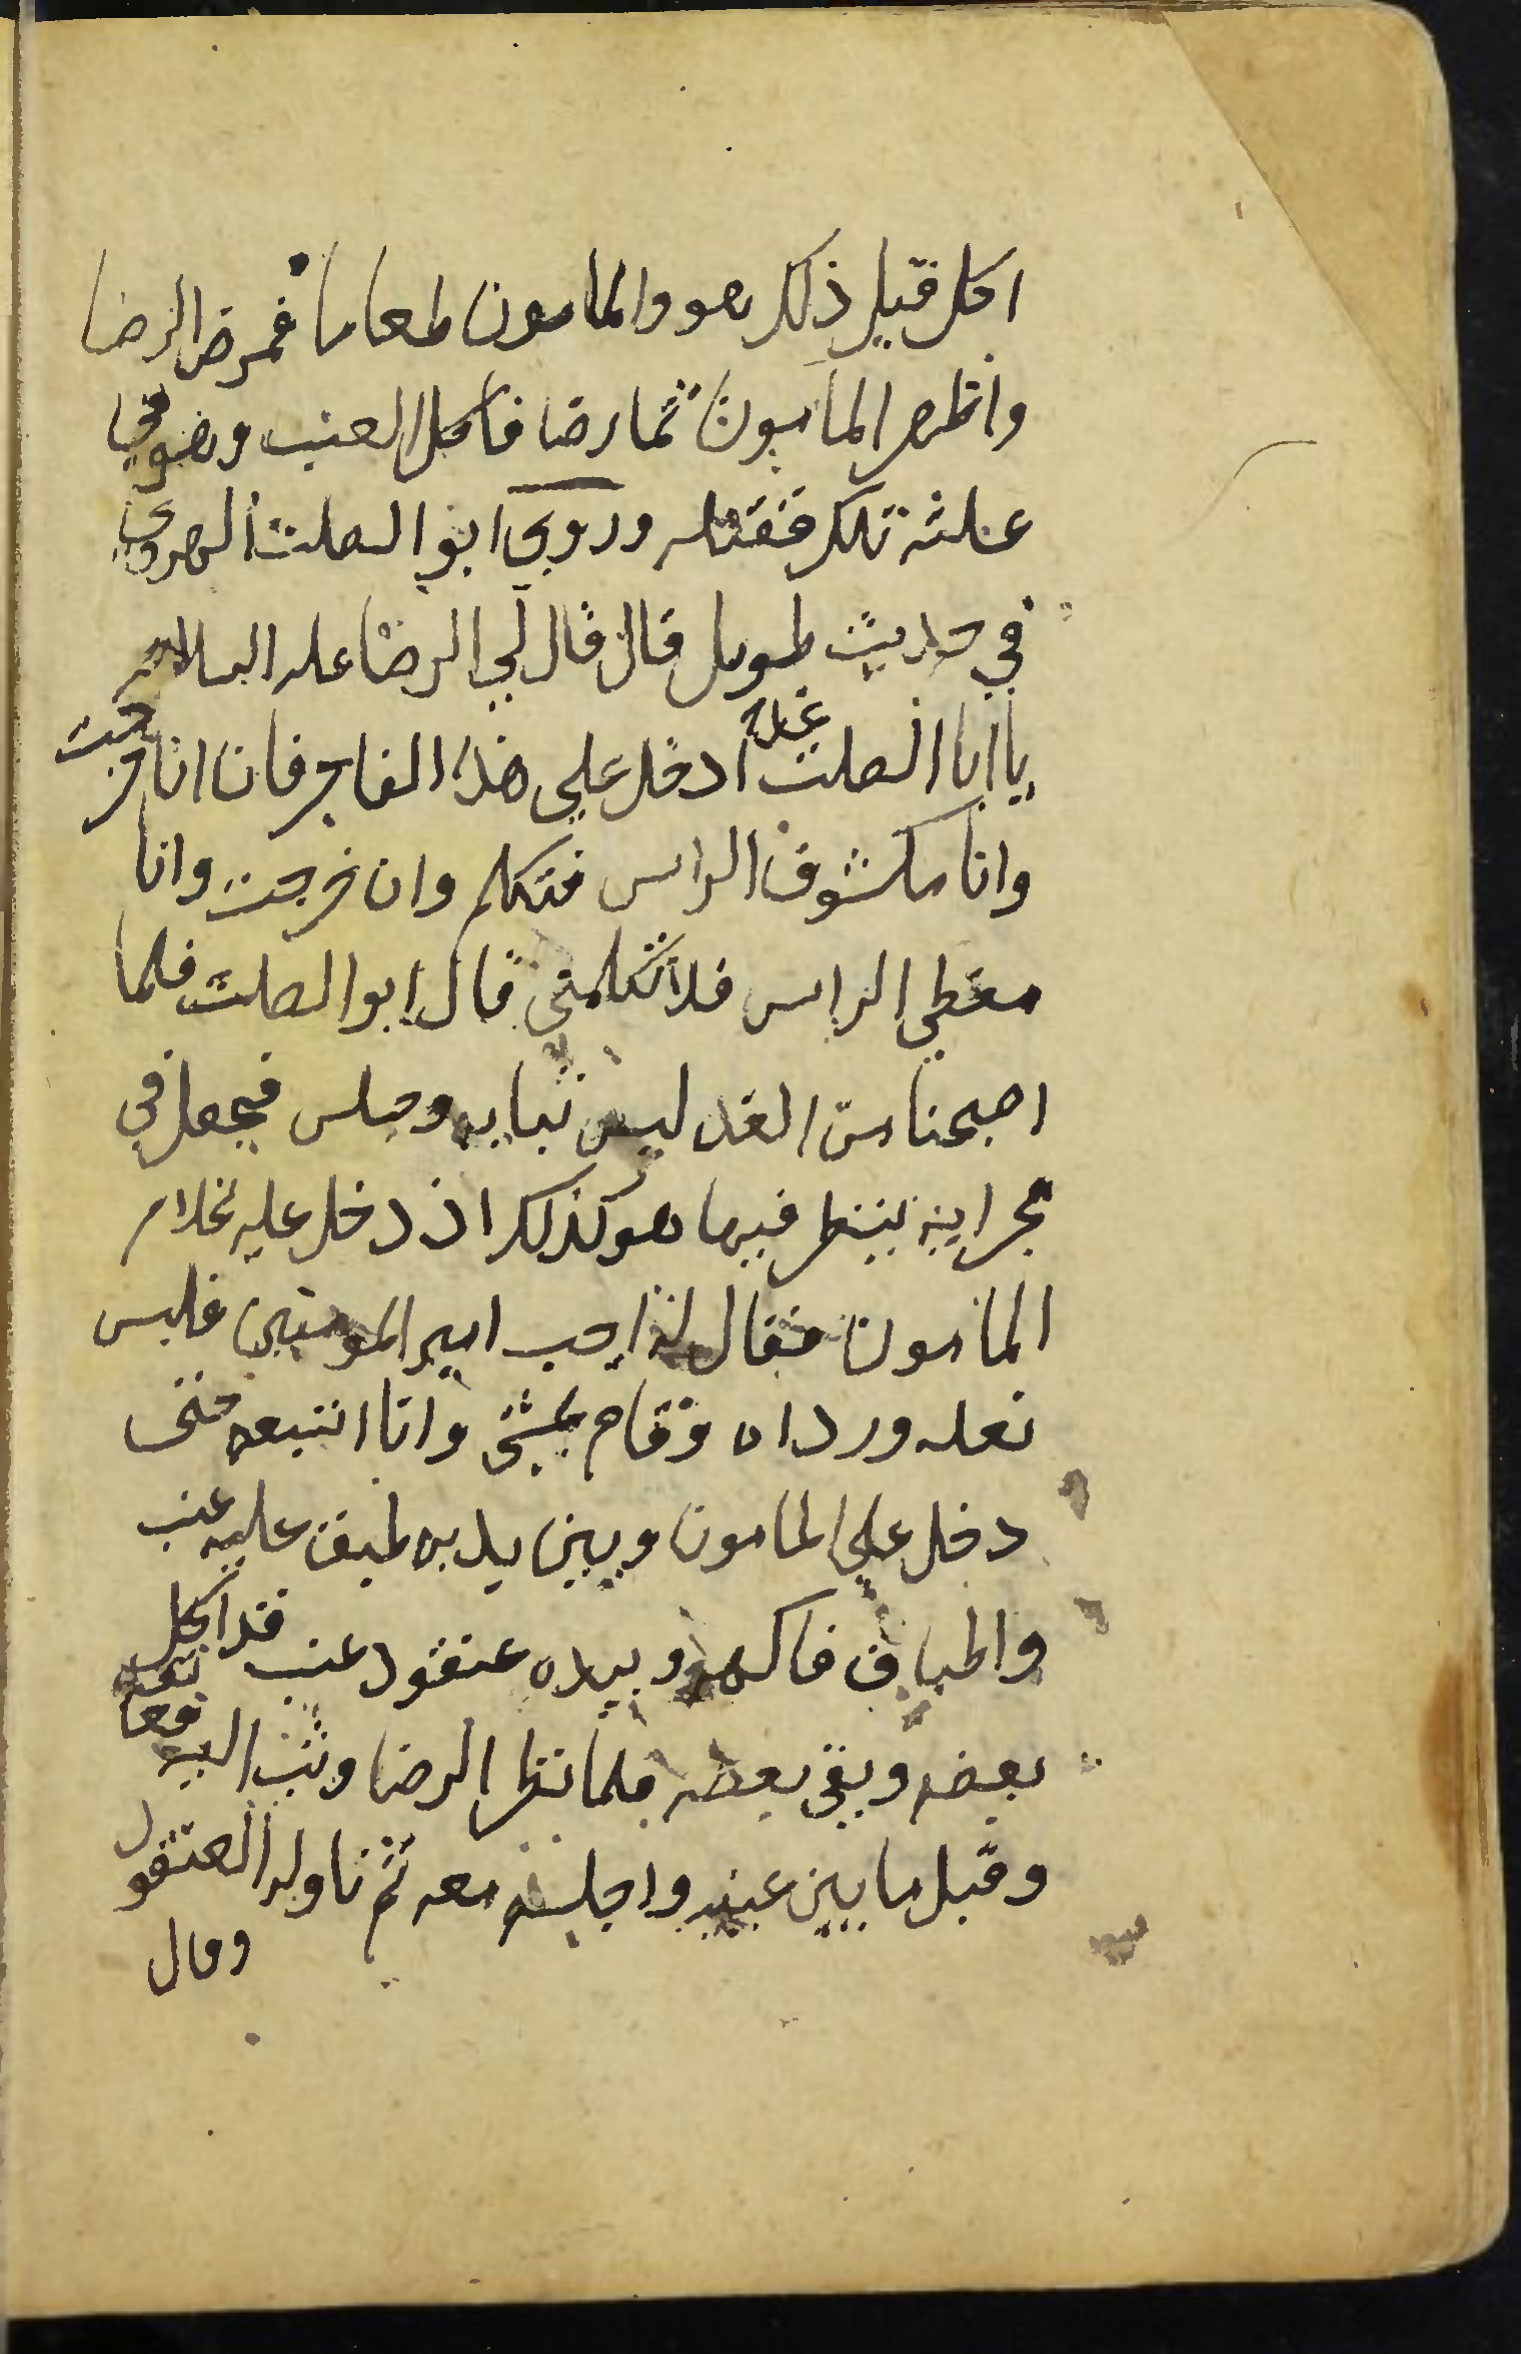 اكل قبل ذلك هو والمامون طعاما فمرض الرضا
واظهر المامون تمارضا فاكل العنب وهو في
علته تلك فقتله وروي ابو الصلت الهروي
في حديث طويل قال قال لي الرضا عليه السلام
يا ابا الصلت غدا ادخل علي هذا الفاجر فان انا خرجت
وانا مكشوف الراس فتكلم وان خرجت وانا
مغطي الراس فلا تكلمني قال ابو الصلت فلما
اصبحنا من الغد لبس ثيابه وجلس فجعل في
محرابه ينتظر فبينما هو كذلك اذ دخل عليه غلام
المامون فقال له اجب امير المومنين فلبس
نعله ورداه وقام يمشي وانا اتبعه حتى
دخل علي المامون وبين يديه طبق عليه عنب
واطباق فاكهة وبيده عنقود عنب قد اكل
بعضه وبقي بعضه فلما نظر الرضا وثب اليه
وقبل ما بين عينيه واجلسه معه ثم ناوله العنقود
وقال